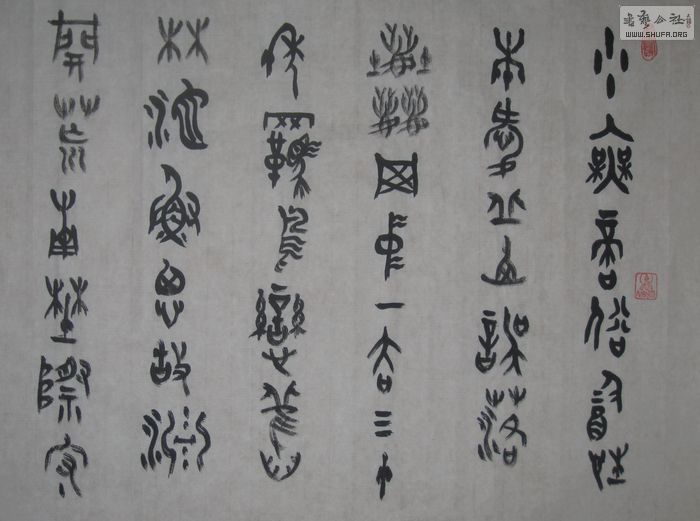 少無適俗韻性
本愛丘山誤落
塵网中一去三十
年羈鳥戀舊
林池魚思故淵
開荒南野際守
書藝公社
WWW.SHUFA.ORG